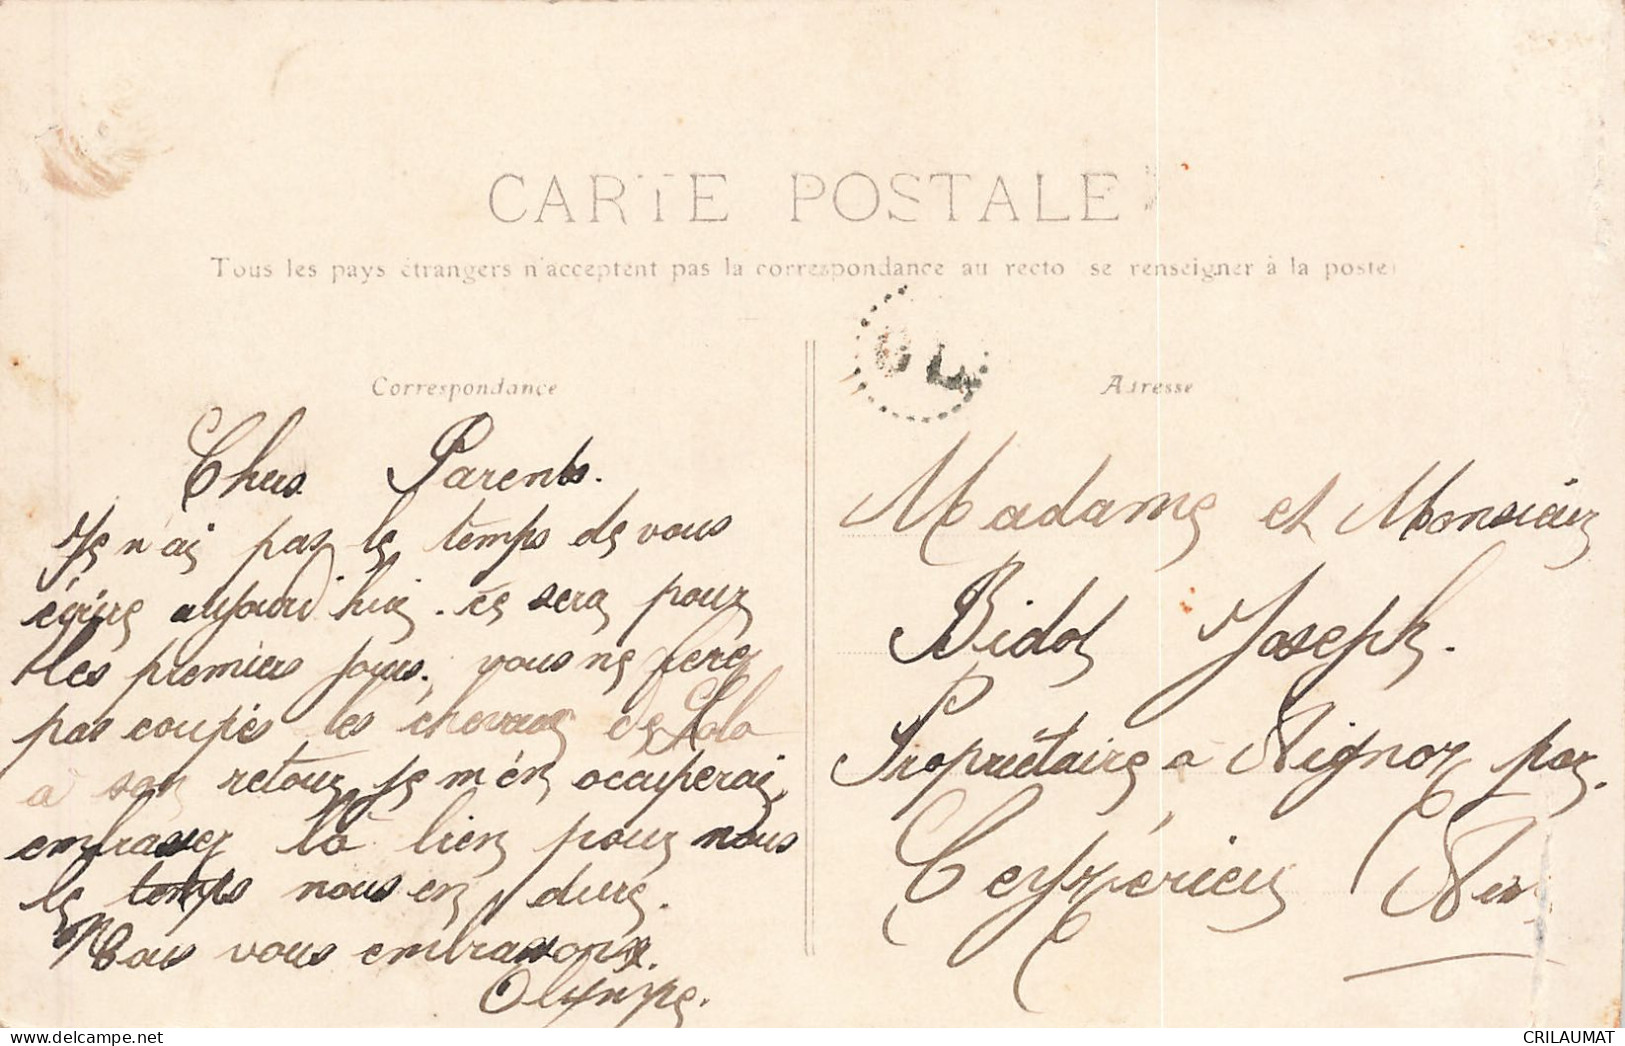 CARTE POSTALE
Tous les pays étrangers n'acceptent pas la correspondance au recto (se renseigner à la poste)
OL
Correspondance
Chers Parents.
Je n'ai pas le temps de vous
écrire aujourd'hui. ce sera pour
les premiers jours. vous ne ferez
pas coupés les cheveux de Lola
à son retour je m'en occuperai,
embrassez la bien pour nous
le temps nous en dure.
Nous vous embrassons.
Olympe.
Adresse
Madame et Monsieur
Bidot Joseph.
Propriétaire a par
Ceyzérieu Ain
CRILAUMAT